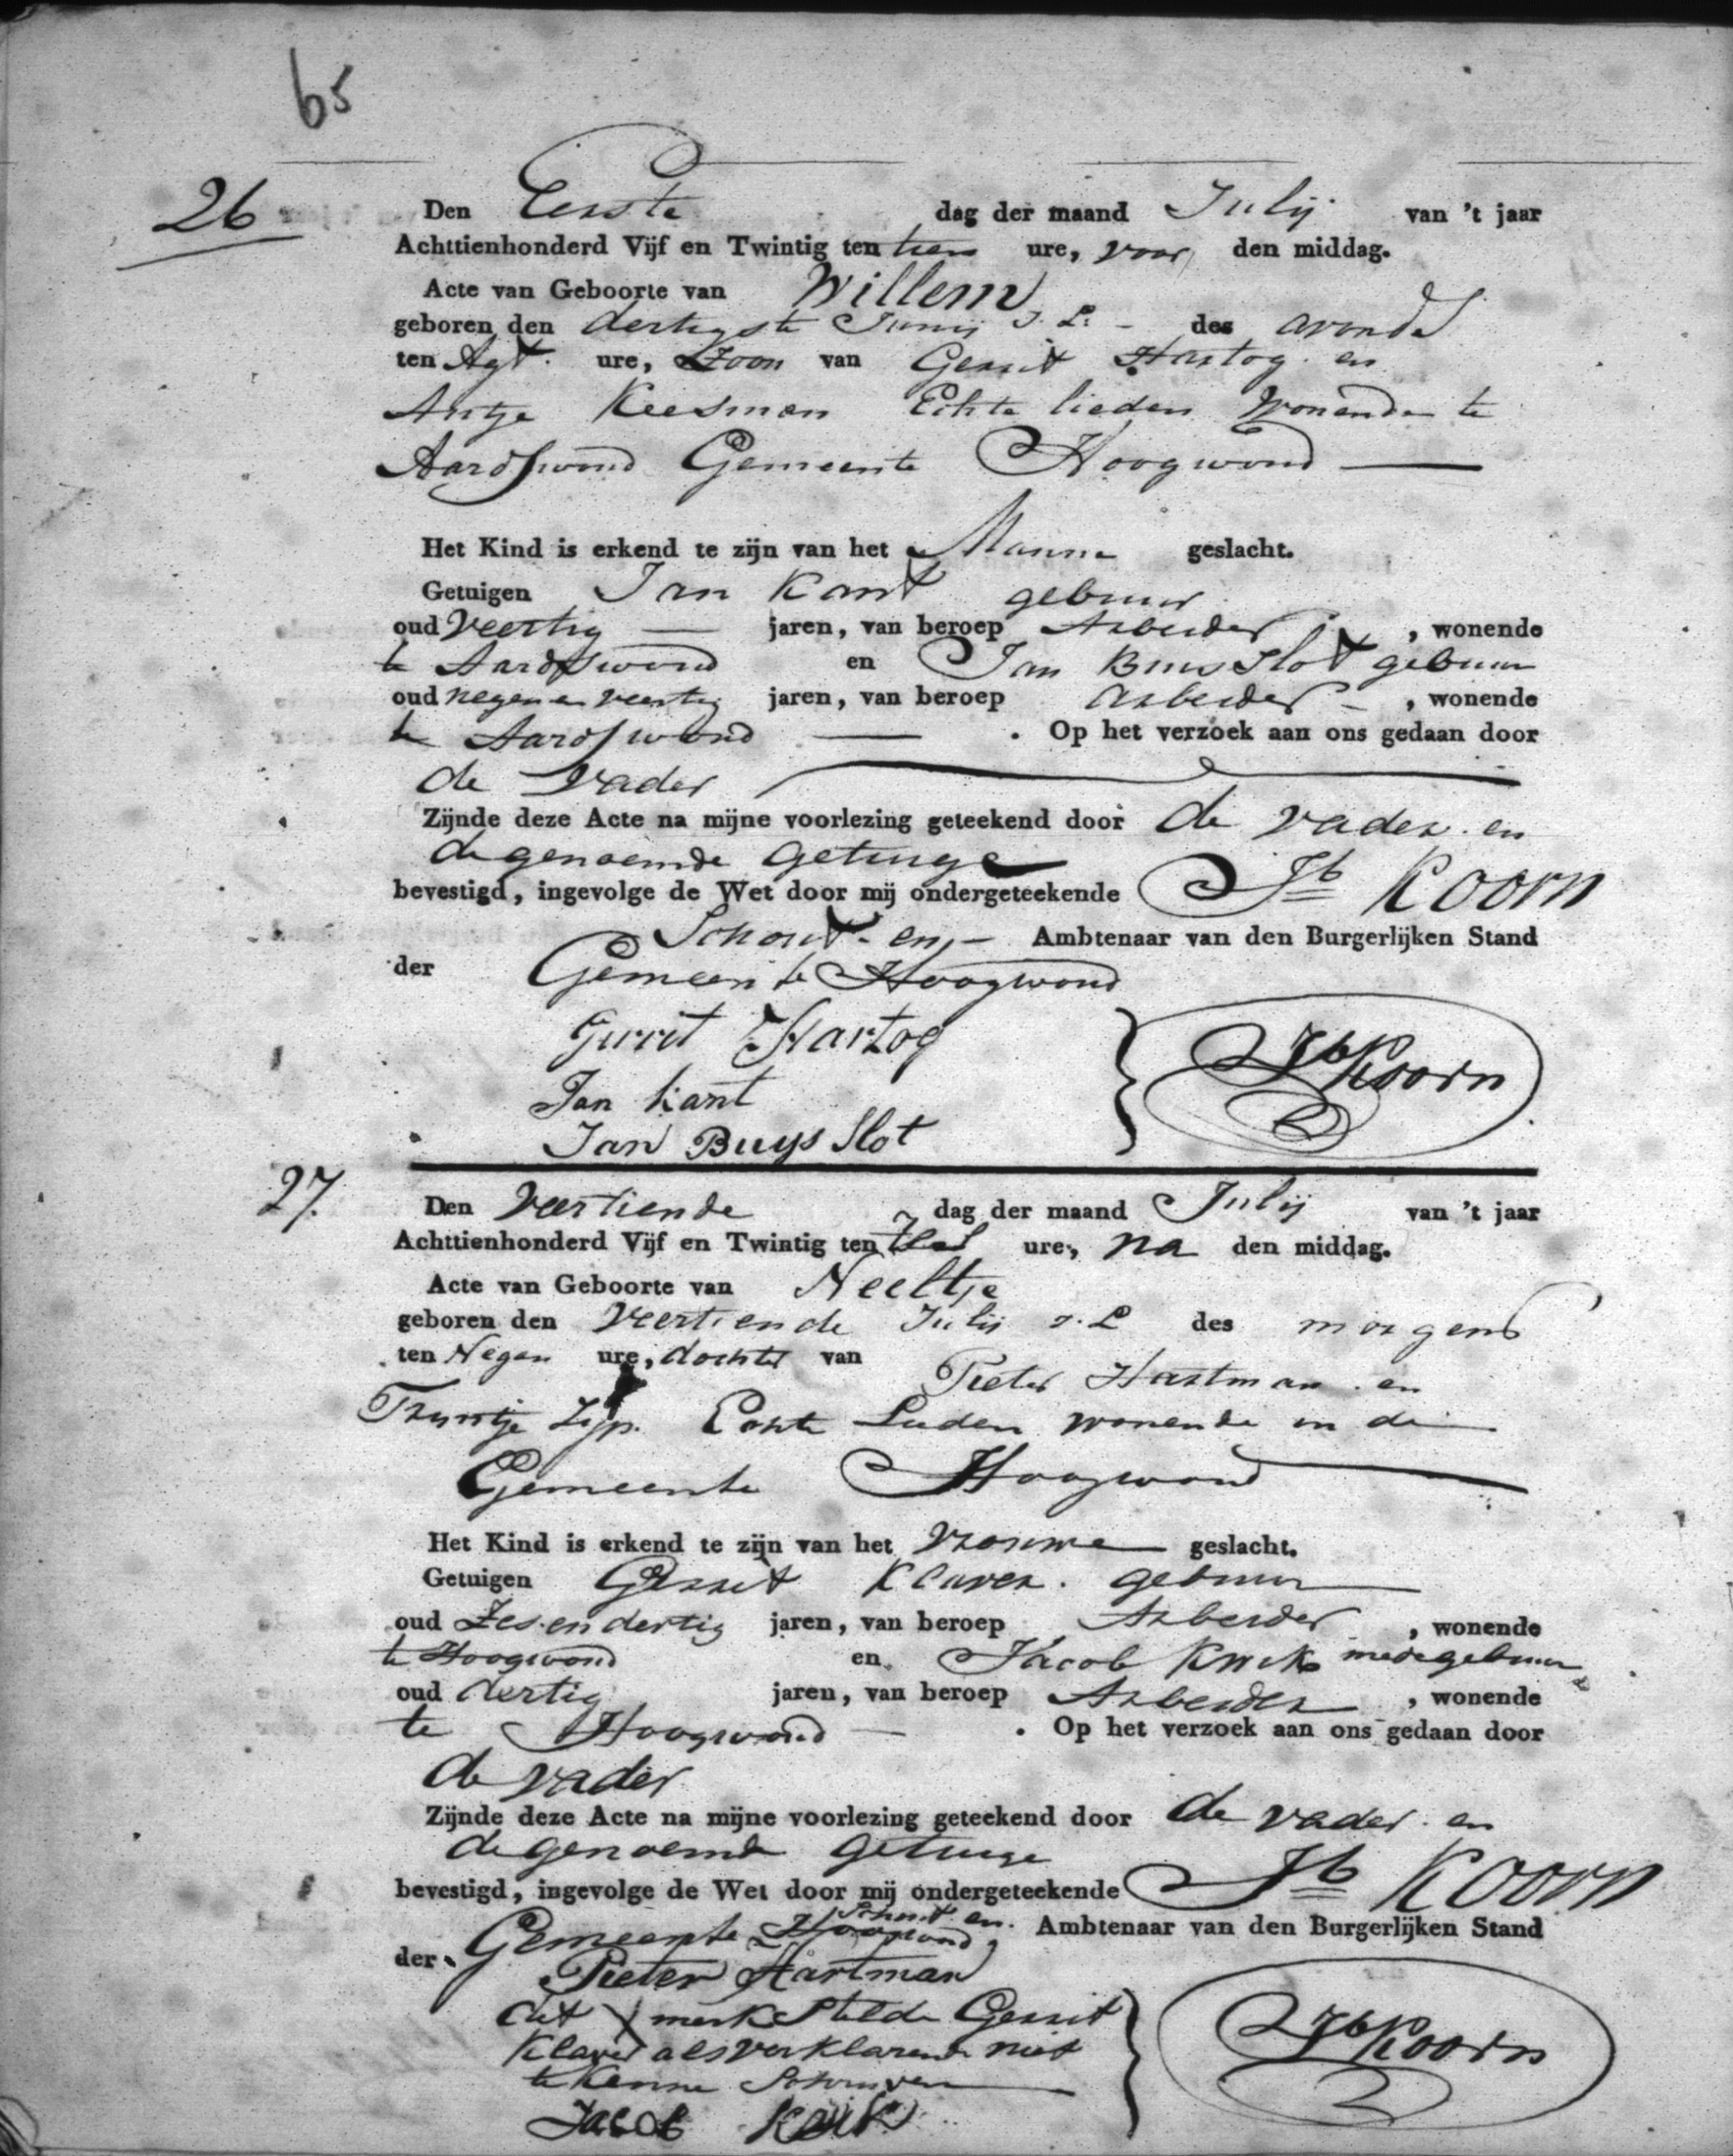 65
26
Den Eerste dag der maand Julij van 't jaar
Achttienhonderd Vijf en Twintig ten tien ure, voor den middag.
Acte van Geboorte van Willem
geboren den dertigste Junij J. L. - des avonds
ten Agt ure, Zoon van Gerrit Hartog en
Antje Keesman Echte lieden Wonende te
Aardswoud Gemeente Hoogwoud
Het Kind is erkend te zijn van het Manne geslacht.
Getuigen Jan Kant gebuur
oud Veertig jaren, van beroep Arbeider, wonende
te Aardswoud en Jan Buus Slot gebuur
oud negen en veertig jaren, van beroep arbeider - , wonende
te Aardswoud . Op het verzoek aan ons gedaan door
de Vader
Zijnde deze Acte na mijne voorlezing geteekend door de vader en
de genoemde Getuige
bevestigd, ingevolge de Wet door mij ondergeteekende Jb Koorn
Schout - en - Ambtenaar van den Burgerlijken Stand
der Gemeente Hoogwoud
Gerrit Hartog
Jan Kant
Jan Buys Slot
Jb Koorn
27.
Den Veertiende dag der maand Julij van 't jaar
Achttienhonderd Vijf en Twintig ten Zes ure, na den middag.
Acte van Geboorte van Neeltje
geboren den Veertiende Julij J. L des morgens
ten Negen ure, dochter van Pieter Hartman en
Tryntje Zijp. Echte Lieden wonende in de
Gemeente Hoogwoud
Het Kind is erkend te zijn van het Vrouwe geslacht.
Getuigen Gerrit Klaver. gebuur
oud Zes en dertig jaren, van beroep Arbeider, wonende
te Hoogwoud en Jacob Kwik mede gebuur
oud dertig jaren, van beroep Arbeider, wonende
te Hoogwoud . Op het verzoek aan ons gedaan door
de vader
Zijnde deze Acte na mijne voorlezing geteekend door de vader en
de genoemde getuige
bevestigd, ingevolge de Wet door mij ondergeteekende Jb Koorn
Schout en Ambtenaar van den Burgerlijken Stand
der Gemeente Hoogwoud
Pieter Hartman
dit X merk Stelde Gerrit
Klaver als verklarende niet
te kenne Schryven
Jacob
Jb Koorn